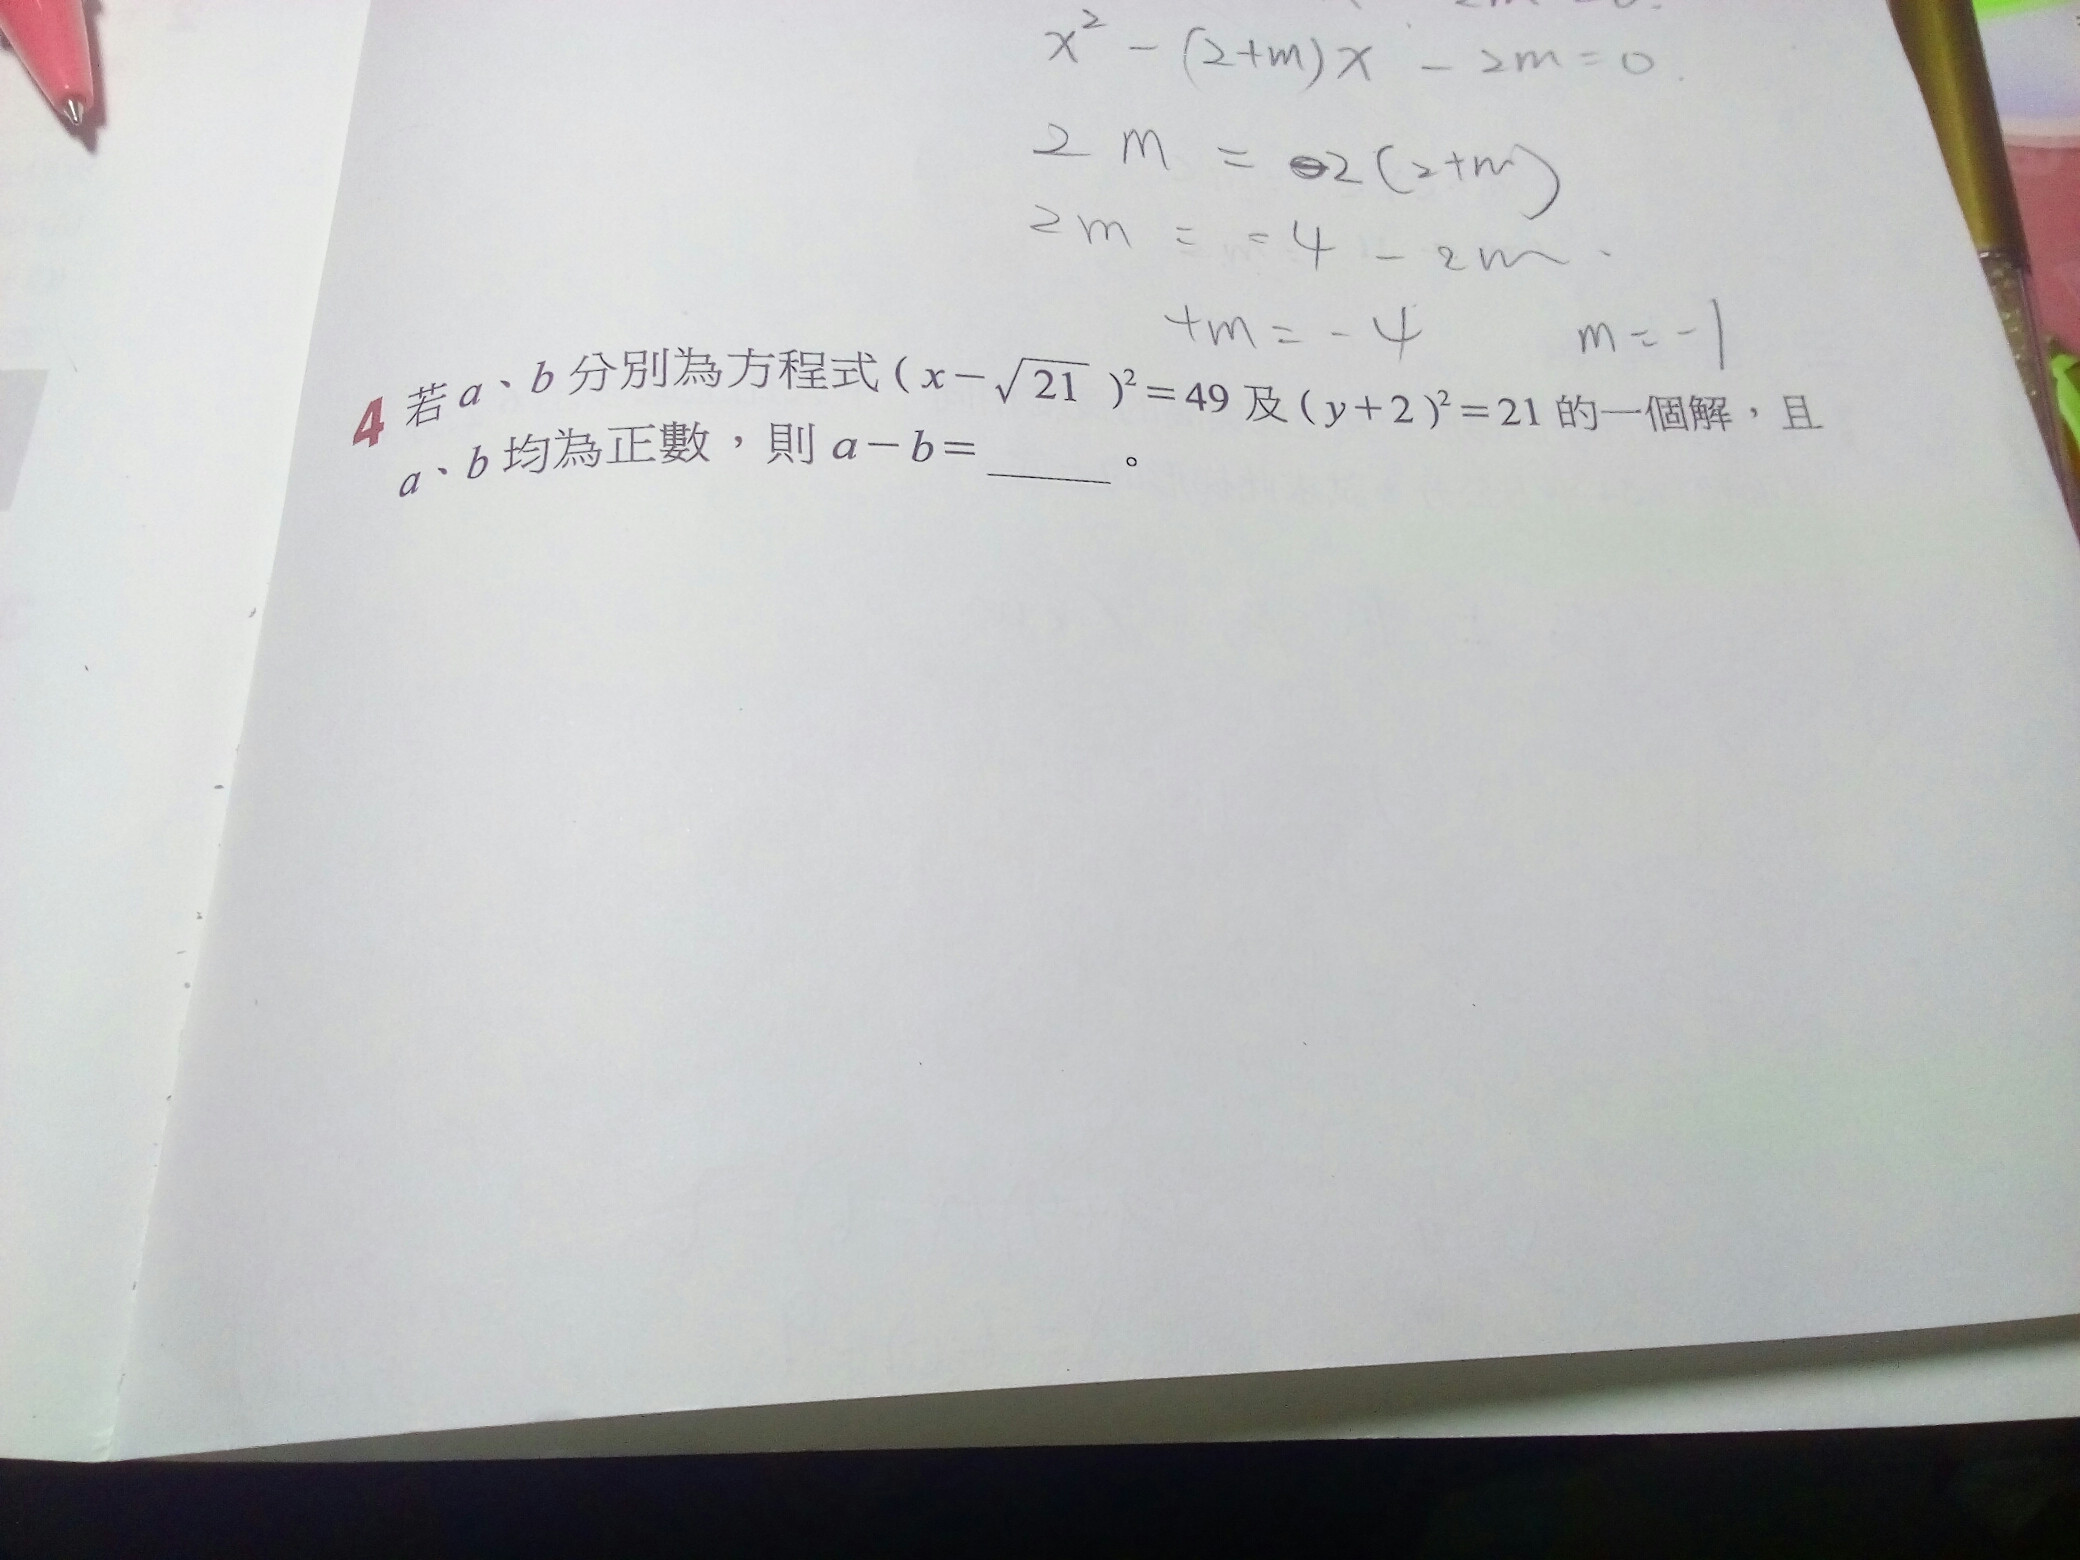 x² - (2+m)x - 2m=0.
2m = 2(2+m)
2m = -4 - 2m.
+m = -4 m = -1
4 若a、b分別為方程式(x-√21)²=49及(y+2)²=21的一個解,且
a、b均為正數,則a-b=______。